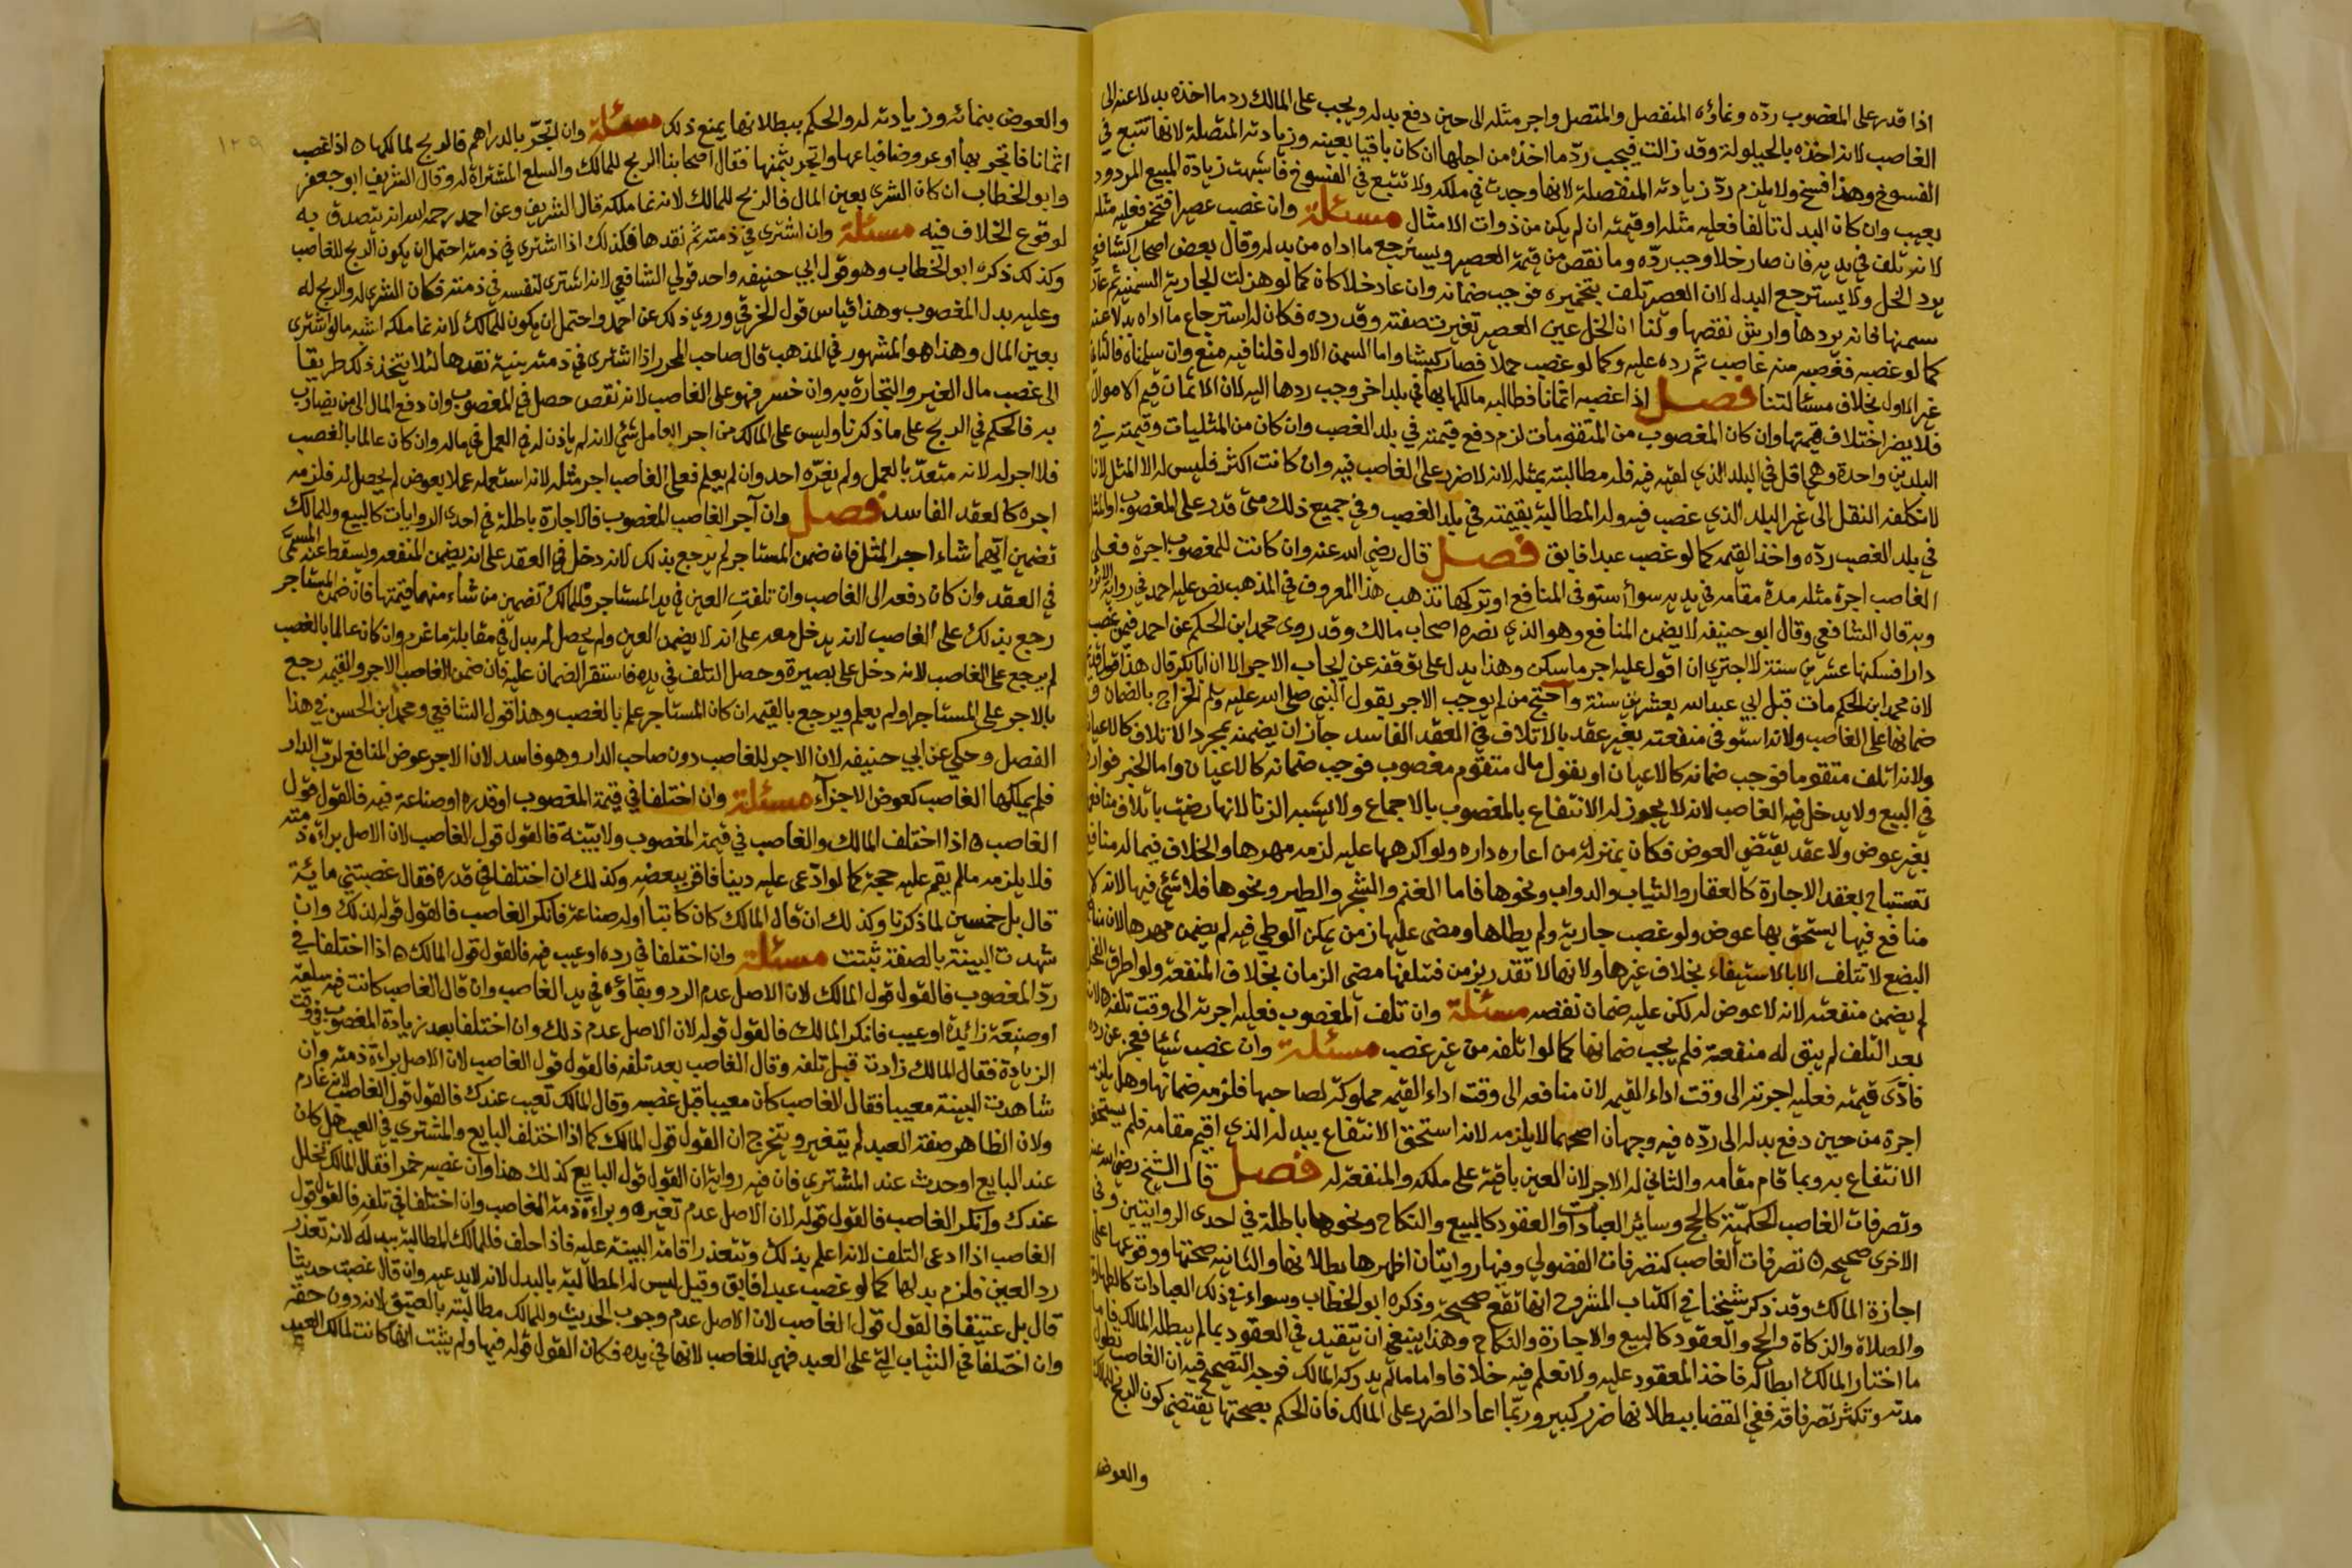 اذا قدر على المغصوب ردّه ونماؤه المنفصل والمتصل واجر مثله الى حين دفع بدله ويجب على المالك رد ما اخذه بدلا عنه الى
الغاصب لانه اخذه بالحيلولة وقد زالت فيجب ردّ ما اخذه من اجلها ان كان باقيا بعينه وزيادته المتصلة لانها تتبع في
الفسوخ وهذا فسخ ولا يلزم ردّ زيادته المنفصلة لانها وجدت في ملكه ولا تتبع في الفسوخ فاشبهت زيادة المبيع المردود
بعيب وان كان البدل تالفا فعليه مثله او قيمته ان لم يكن من ذوات الامثال مسئلة وان غصب عصيرا فتخمر فعليه مثله
لانه تلف في يديه فان صار خلا وجب ردّه وما نقص من قيمة العصير ويسترجع ما اداه من بدله وقال بعض اصحاب الشافعي
يرد الخل ولا يسترجع البدل لان العصير تلف بتخميره فوجب ضمانه وان عاد خلا كما لو هزلت الجارية السمينة ثم عاد
سمنها فانه يردها وارش نقصها ولنا ان الخل عين العصير تغيرت صفته وقد رده فكان له استرجاع ما اداه بدلا عنه
كما لو غصبه فغصبه منه غاصب ثم رده عليه وكما لو غصب حملا فصار كبشا واما السمن الاول قلنا فيه منع وان سلمناه فالثاني
غير الاول بخلاف مسئالتنا فصل اذا غصبه اثمانا فطالبه مالكها بها في بلد اخر وجب ردها اليه لان الاثمان قيم الاموال
فلا يضر اختلاف قيمتها وان كان المغصوب من المتقومات لزم دفع قيمته في بلد الغصب وان كان من المثليات وقيمته في
البلدين واحدة وهي اقل في البلد الذي لقيه فيه فله مطالبته بمثله لانه لا ضرر على الغاصب فيه وان كانت اكثر فليس له الا المثل لانا
لا نكلفه النقل الى غير البلد الذي غصب فيه وله المطالبة بقيمته في بلد الغصب وفي جميع ذلك متى قدر على المغصوب او المثل
في بلد الغصب ردّه واخذ القيمه كما لو غصب عبدا فابق فصل قال رضي الله عنه وان كانت للمغصوب اجرة فعلى
الغاصب اجرة مثله مدة مقامه في يديه سوأ استوفى المنافع او تركها تذهب هذا المعروف في المذهب نص عليه احمد في رواية الاثرم
وبه قال الشافعي وقال ابو حنيفه لا يضمن المنافع وهو الذي نصره اصحاب مالك وقد روى محمد ابن الحكم عن احمد فيمن غصب
دارا فسكنها عشرين سنة لا اجتري ان اقول عليه اجر ما سكن وهذا يدل على توقفه عن ايجاب الاجر الا ان ابا بكر قال هذا قول قديم
لان محمد ابن الحكم مات قبل ابي عبد الله بعشرين سنة واحتج من لم يوجب الاجر بقول النبي صلى الله عليه وسلم الخراج بالضمان و
ضمانها على الغاصب ولانه استوفى منفعته بغير عقد بالاتلاف في العقد الفاسد جاز ان يضمنه بمجرد الاتلاف كالاعيان
ولانه اتلف متقوما فوجب ضمانه كالاعيان او نقول مال متقوم مغصوب فوجب ضمانه كالاعيان واما الخبر فوارد
في البيع ولا يدخل فيه الغاصب لانه لا يجوز له الانتفاع بالمغصوب بالاجماع ولا يشبه الزنا لانها رضيت باتلاف منافعها
بغير عوض ولا عقد يقتضي العوض فكان بمنزلة من اعاره داره ولو اكرهها عليه لزمه مهرها والخلاف فيما له منافع
تستباح بعقد الاجارة كالعقار والثياب والدواب ونحوها فاما الغنم والشجر والطير ونحوها فلا شيء فيها لانه لا
منافع فيها يستحق بها عوض ولو غصب جارية ولم يطاها ومضى عليها زمن يمكن الوطي فيه لم يضمن مهرها لان منافع
البضع لا تتلف الا بالاستيفاء بخلاف غيرها ولانها لا تقدر بزمن فتتلفها مضي الزمان بخلاف المنفعة ولو اطرق الفحل
لم يضمن منفعته لانه لا عوض له لكن عليه ضمان نقصه مسئلة وان تلف المغصوب فعليه اجرته الى وقت تلفه لانه
بعد التلف لم يبق له منفعة فلم يجب ضمانها كما لو اتلفه من غير غصب مسئلة وان غصب شيئا فعجز عن رده
فادّى قيمته فعليه اجرته الى وقت اداء القيمه لان منافعه الى وقت اداء القيمه مملوكة لصاحبها فلزمه ضمانها وهل يلزمه
اجرة من حين دفع بدله الى ردّه فيه وجهان اصحهما لا يلزمه لانه استحق الانتفاع ببدله الذي اقيم مقامه فلم يستحق
الانتفاع به وبما قام مقامه والثاني له الاجر لان العين باقية على ملكه والمنفعة له فصل قال الشيخ رضي الله عنه
وتصرفات الغاصب الحكميّة كالحج وسائر العبادات والعقود كالبيع والنكاح ونحوها باطلة في احدى الروايتين وفي
الاخرى صحيحه ٥ تصرفات الغاصب كتصرفات الفضولي وفيها روايتان اظهرها بطلانها والثانية صحتها ووقوفها على
اجازة المالك وقد ذكر شيخنا في الكتاب المشروح انها تقع صحيحة وذكره ابو الخطاب وسواء في ذلك العبادات كالطهارة
والصلاة والزكاة والحج والعقود كالبيع والاجارة والنكاح وهذا ينبغي ان يتقيد في العقود بما لم يبطله المالك فاما
ما اختار المالك ابطاله فاخذ المعقود عليه ولا نعلم فيه خلافا واما ما لم يدركه المالك فوجه التصحيح فيه ان الغاصب تطول
مدته وتكثر تصرفاته ففي القضا ببطلانها ضرر كبير وربّما اعاد الضرر على المالك فان الحكم بصحتها يقتضي كون الربح للمالك
والعوض
١٢٩
والعوض بنمائه وزيادته له والحكم ببطلانها يمنع ذلك مسئلة وان اتّجر بالدراهم فالربح لمالكها ٥ اذا غصب
اثمانا فاتجر بها او عروضا فباعها واتجر بثمنها فقال اصحابنا الربح للمالك والسلع المشتراة له وقال الشريف ابو جعفر
وابو الخطاب ان كان الشرى بعين المال فالربح للمالك لانه نما ملكه قال الشريف وعن احمد رحمه الله انه يتصدق به
لوقوع الخلاف فيه مسئلة وان اشترى في ذمته ثم نقدها فكذلك اذا اشترى في ذمته احتمل ان يكون الربح للغاصب
وكذلك ذكره ابو الخطاب وهو قول ابي حنيفه واحد قولي الشافعي لانه اشترى لنفسه في ذمته فكان الشرى له والربح له
وعليه بدل المغصوب وهذا قياس قول الخرقي وروي ذلك عن احمد واحتمل ان يكون للمالك لانه نما ملكه اشبه ما لو اشترى
بعين المال وهذا هو المشهور في المذهب قال صاحب المحرر اذا اشترى في ذمته بنية نقدها لئلا يتخذ ذلك طريقا
الى غصب مال الغير والتجارة به وان خسر فهو على الغاصب لانه نقص حصل في المغصوب وان دفع المال الى من يضارب
به فالحكم في الربح على ما ذكرنا وليس على المالك من اجر العامل شيء لانه لم ياذن له في العمل في ماله وان كان عالما بالغصب
فلا اجر له لانه متعدّ بالعمل ولم يغرّه احد وان لم يعلم فعلى الغاصب اجر مثله لانه استعمله عملا بعوض لم يحصل له فلزمه
اجره كالعقد الفاسد فصل وان آجر الغاصب المغصوب فالاجارة باطلة في احدى الروايات كالبيع وللمالك
تضمين ايّهما شاء اجر المثل فان ضمن المستاجر لم يرجع بذلك لانه دخل في العقد على انه يضمن المنفعه ويسقط عنه المسمّى
في العقد وان كان دفعه الى الغاصب وان تلفت العين في يد المستاجر فللمالك تضمين من شاء منهما قيمتها فان ضمن المستاجر
رجع بذلك على الغاصب لانه يدخل معه على انه لا يضمن العين ولم يحصل له بدل في مقابلة ما غرم وان كان عالما بالغصب
لم يرجع على الغاصب لانه دخل على بصيرة وحصل التلف في يده فاستقر الضمان عليه فان ضمن الغاصب الاجر والقيمه رجع
بالاجر على المستاجر اولم يعلم ويرجع بالقيمه ان كان المستاجر علم بالغصب وهذا قول الشافعي ومحمد ابن الحسن في هذا
الفصل وحكي عن ابي حنيفه لان الاجر للغاصب دون صاحب الدار وهو فاسد لان الاجر عوض المنافع لربّ الدار
فلم يملكها الغاصب كعوض الاجزآء مسئلة وان اختلفا في قيمة المغصوب او قدره او صناعة فيه فالقول قول
الغاصب ٥ اذا اختلف المالك والغاصب في قيمة المغصوب ولا بيّنة فالقول قول الغاصب لان الاصل براءة ذمته
فلا يلزمه مالم يقم عليه حجة كما لو ادّعى عليه دينا فاقر ببعضه وكذلك ان اختلفا في قدره فقال غصبتني مائة
قال بل خمسين لما ذكرنا وكذلك ان قال المالك كان كاتبا او له صناعة فانكر الغاصب فالقول قوله لذلك وان
شهدت البينة بالصفة ثبتت مسئلة وان اختلفا في رده او عيب فيه فالقول قول المالك ٥ اذا اختلفا في
ردّ المغصوب فالقول قول المالك لان الاصل عدم الرد وبقاؤه في يد الغاصب وان قال الغاصب كانت فيه سلعة
او صنعة زائدة او عيب فانكر المالك فالقول قوله لان الاصل عدم ذلك وان اختلفا بعد زيادة المغصوب في وقت
الزيادة فقال المالك زادت قبل تلفه وقال الغاصب بعد تلفه فالقول قول الغاصب لان الاصل براءة ذمته وان
شاهدت البينة معيبا فقال الغاصب كان معيبا قبل غصبه وقال المالك تعيب عندك فالقول قول الغاصب لانه غارم
ولان الظاهر صفة العبد لم يتغير ويتخرج ان القول قول المالك كما اذا اختلف البايع والمشتري في العيب هل كان
عند البايع او حدث عند المشتري فان فيه رواية ان القول قول البايع كذلك هذا وان غصبه خمرا فقال المالك تخلل
عندك وانكر الغاصب فالقول قوله لان الاصل عدم تغيره وبراءة ذمة الغاصب وان اختلفا في تلفه فالقول قول
الغاصب اذا ادعى التلف لانه اعلم بذلك وتتعذر اقامة البينة عليه فاذا حلف فللمالك المطالبة ببدله لانه تعذر
رد العين فلزم بدلها كما لو غصب عبدا فابق وقيل ليس له المطالبة بالبدل لانه لا يدعيه وان قال غصبت حديثا
قال بل عتيقا فالقول قول الغاصب لان الاصل عدم وجوب الحديث وللمالك مطالبته بالعتيق لانه دون حقه
وان اختلفا في الثياب التي على العبد فهي للغاصب لانها في يده فكان القول قوله فيها ولم يثبت انها كانت لمالك العبد